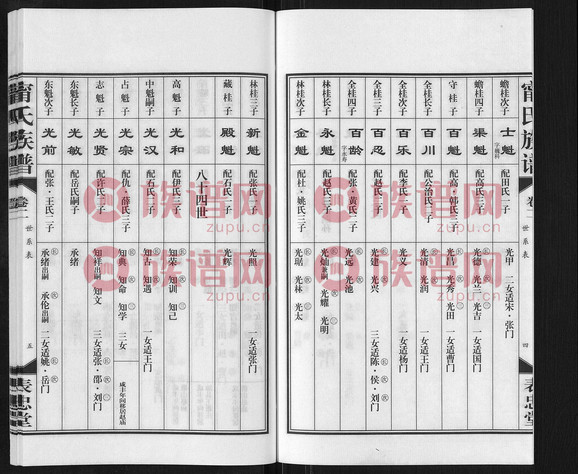 甯氏族谱
卷二
世系表
四
表忠堂
蟾桂次子 士魁 字孺科 配田氏一子 光甲 二女适宋·张门
蟾桂四子 渠魁 配高氏三子 光建 光兰 光吉 一女适国门
守桂子 百魁 配高·郭氏三子 光昌 光秀 光田 一女适曹门
全桂长子 百川 配公治氏二子 光浩 光润
全桂次子 百乐 配李氏一子 光义 一女适杨门
全桂三子 百忍 配赵氏二子 光玉 光兴 三女适陈·侯·刘门
全桂四子 百龄 字永寿 配张·黄氏二子 光远 光池
林桂长子 永魁 配赵氏三子 光灿兼嗣 光耀 光明
林桂次子 金魁 配杜·姚氏三子 光琚 光林 光太
林桂三子 新魁 配张氏一子 光照 一女适张门
藏桂子 殿魁 配石氏一子 光辉
八十四世
高魁子 光和 配伊氏三子 知荣 知训 知己
中魁嗣子 光汉 配石氏二子 知古 知遇 一女适王门
占魁子 光宗 配仇·薛氏三子 知典 知命 知学 二女 咸丰年间移居赵庙
志魁子 光贤 配许氏二子 知祥出嗣 知文 三女适张·邵·刘门
东魁长子 光敏 配岳氏嗣子 承绪
东魁次子 光前 配张·王氏二子 承绪出嗣 承伦出嗣 二女适姚·岳门
甯氏族谱
卷二
世系表
五
表忠堂
族谱网
zupu.cn